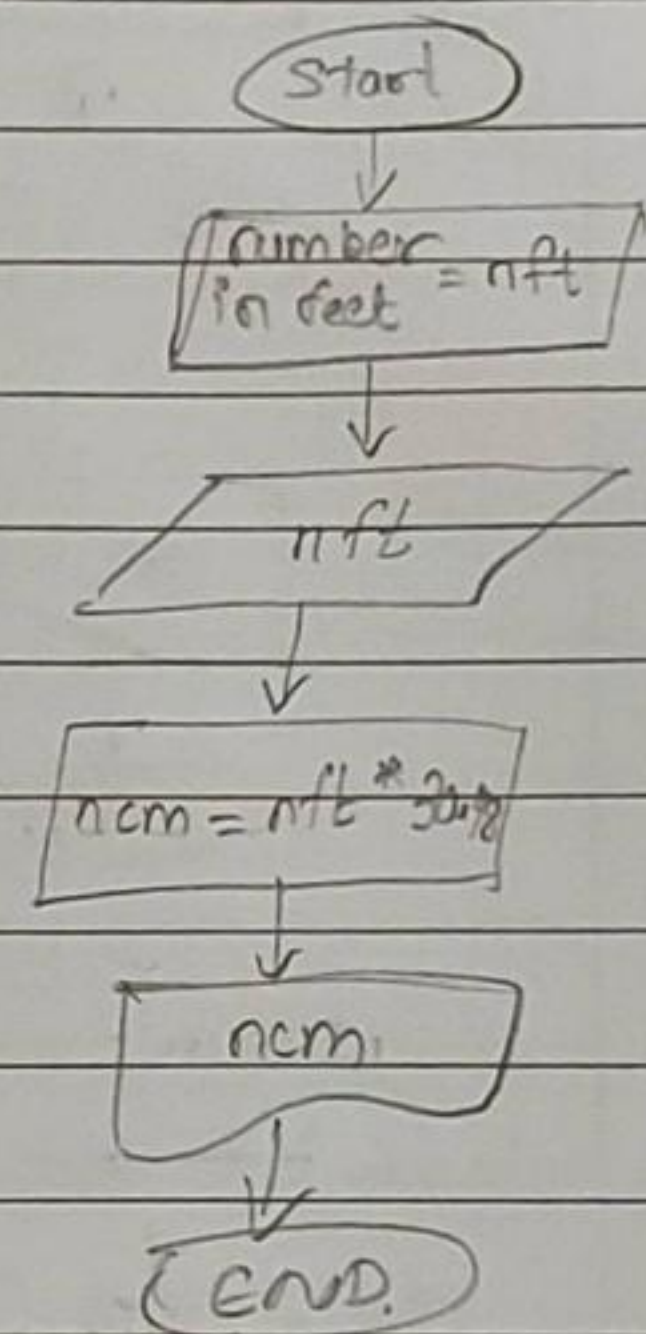 Start
number
in feet = nft
nft
ncm = nft *
ncm
END.